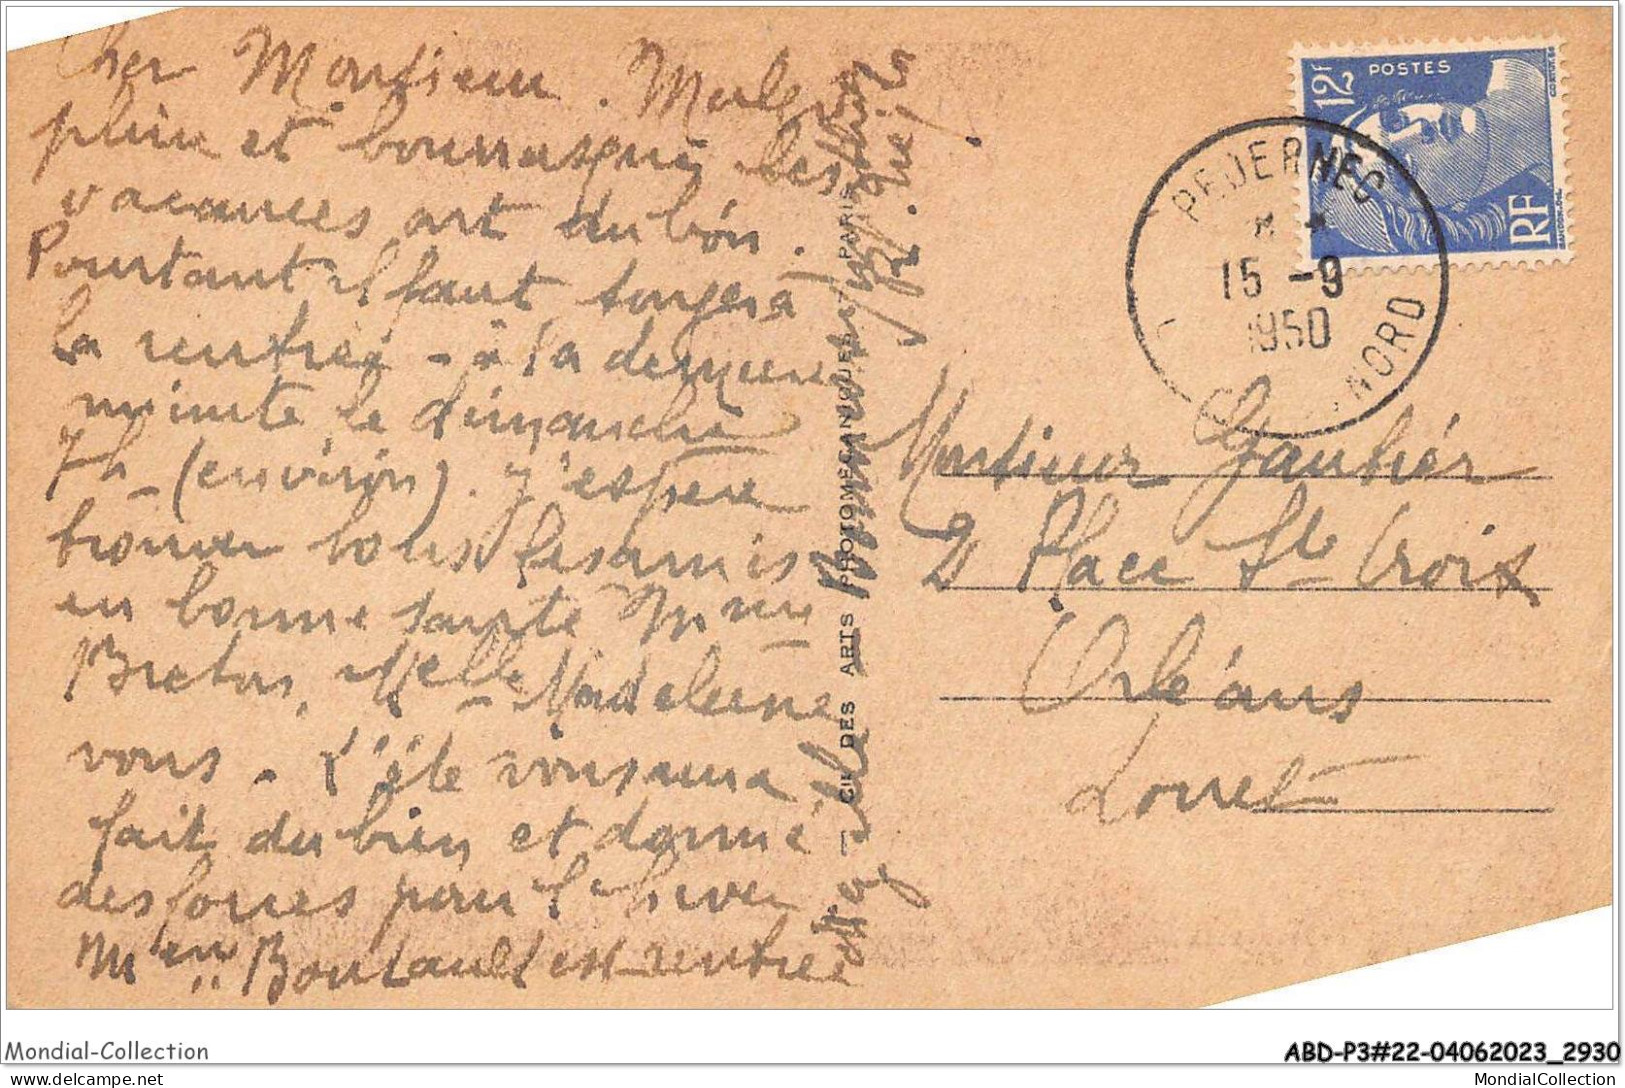 Cher Monsieur. Malgré
pluie et bourrasques les
vacances ont du bon.
Pourtant il faut songer à
la rentrée - à la dernière
minute le dimanche
7h - (environ). J'espère
trouver tous les amis
en bonne santé Mme
Breton, Melle Madeleine
vous. L'été vous aura
fait du bien et donné
des forces pour l'hiver
Boutault est rentrée
CIE DES ARTS PHOTOMECANIQUES PARIS
POSTES
12F
RF
PLUERNEC
15 -9
1950
NORD
Monsieur Gautier
2 Place Ste Croix
Orléans
Loiret
Mondial-Collection
ABD-P3#22-04062023_2930
delcampe.net
MondialCollection